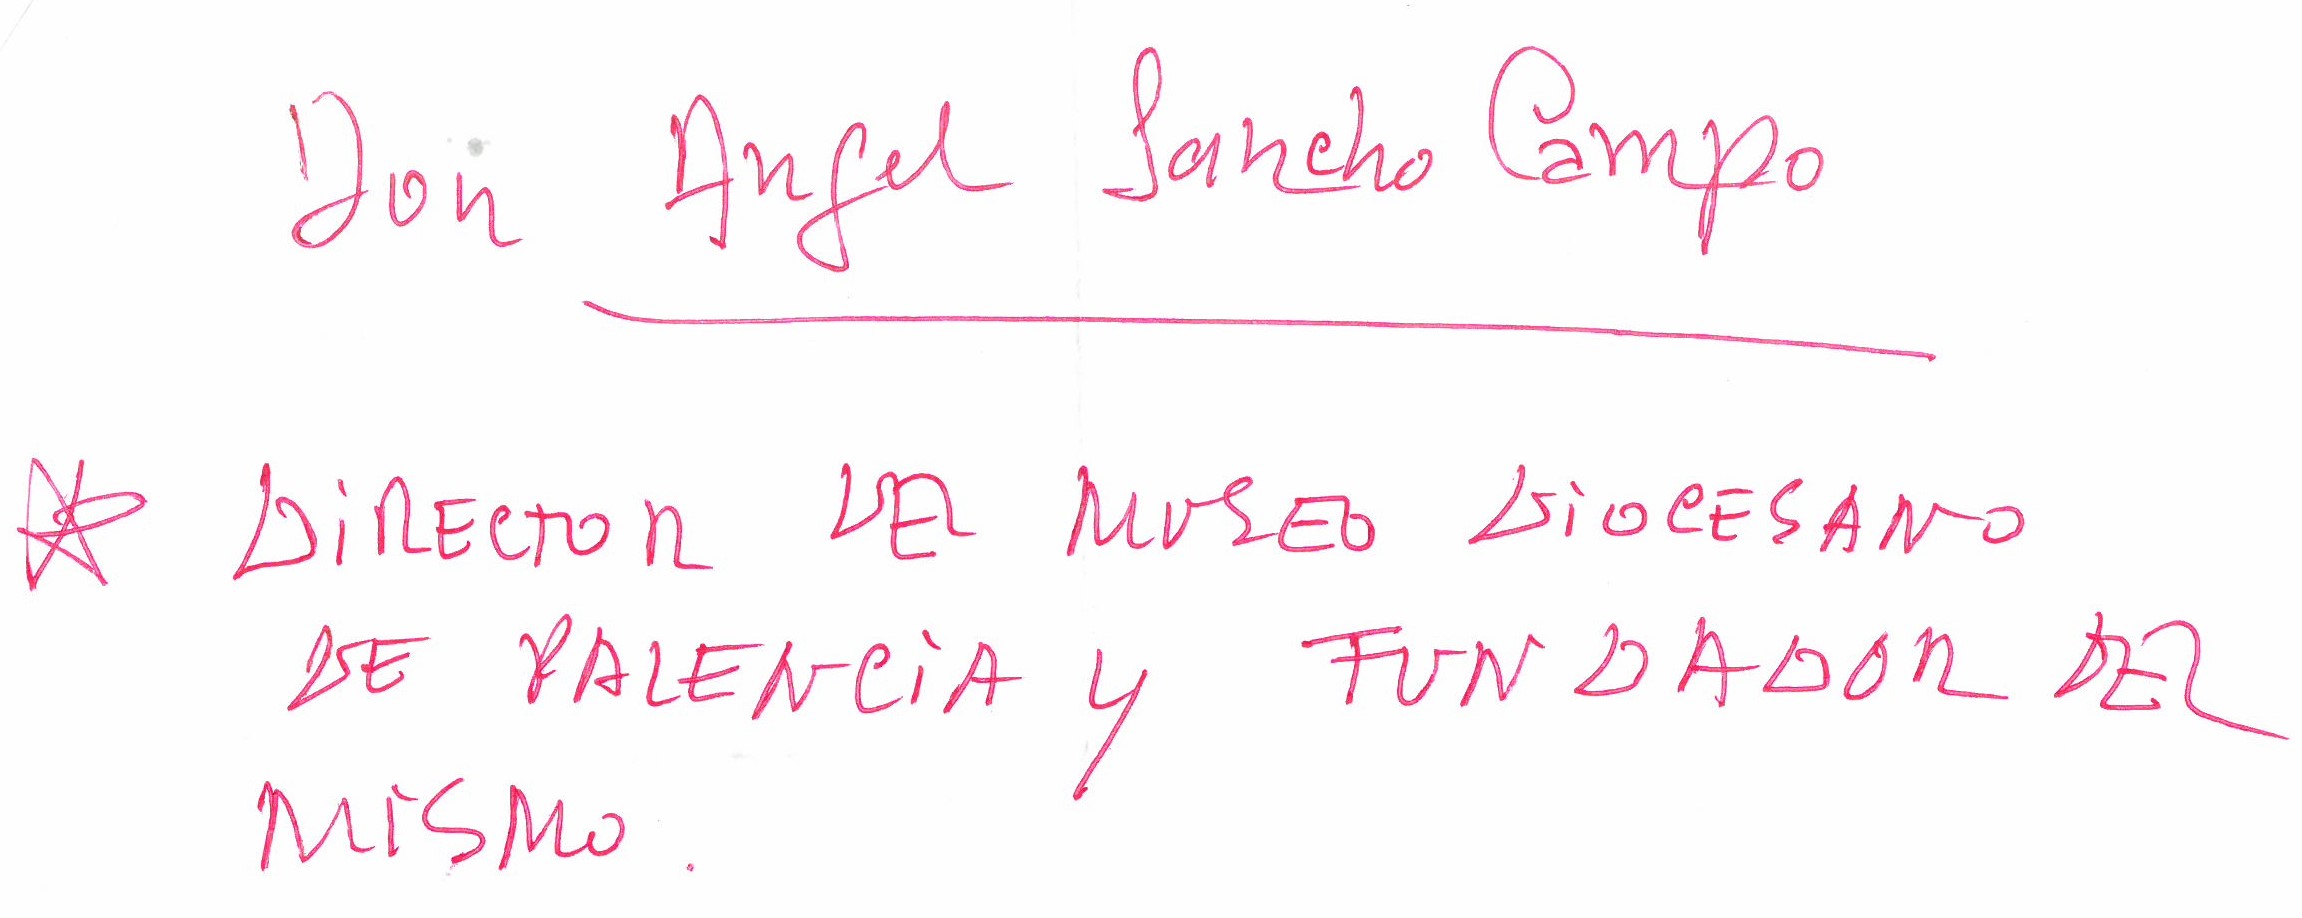 Don Angel Sancho Campo
DIRECTOR DEL MUSEO DIOCESANO
DE PALENCIA Y FUNDADOR DEL
MISMO.